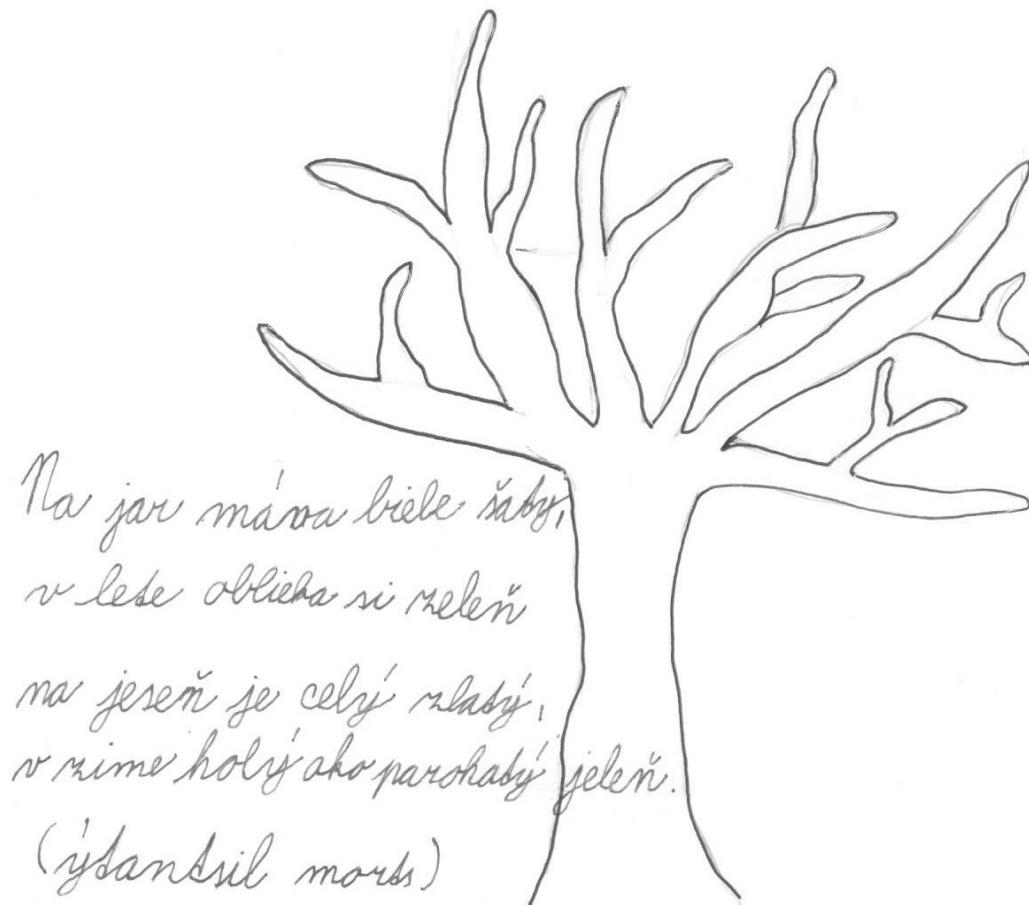 Na jar máva biele šaty,
v lete oblieka si zeleň
na jeseň je celý zlatý,
v zime holý ako parohatý jeleň.
(ýtantsil morts)